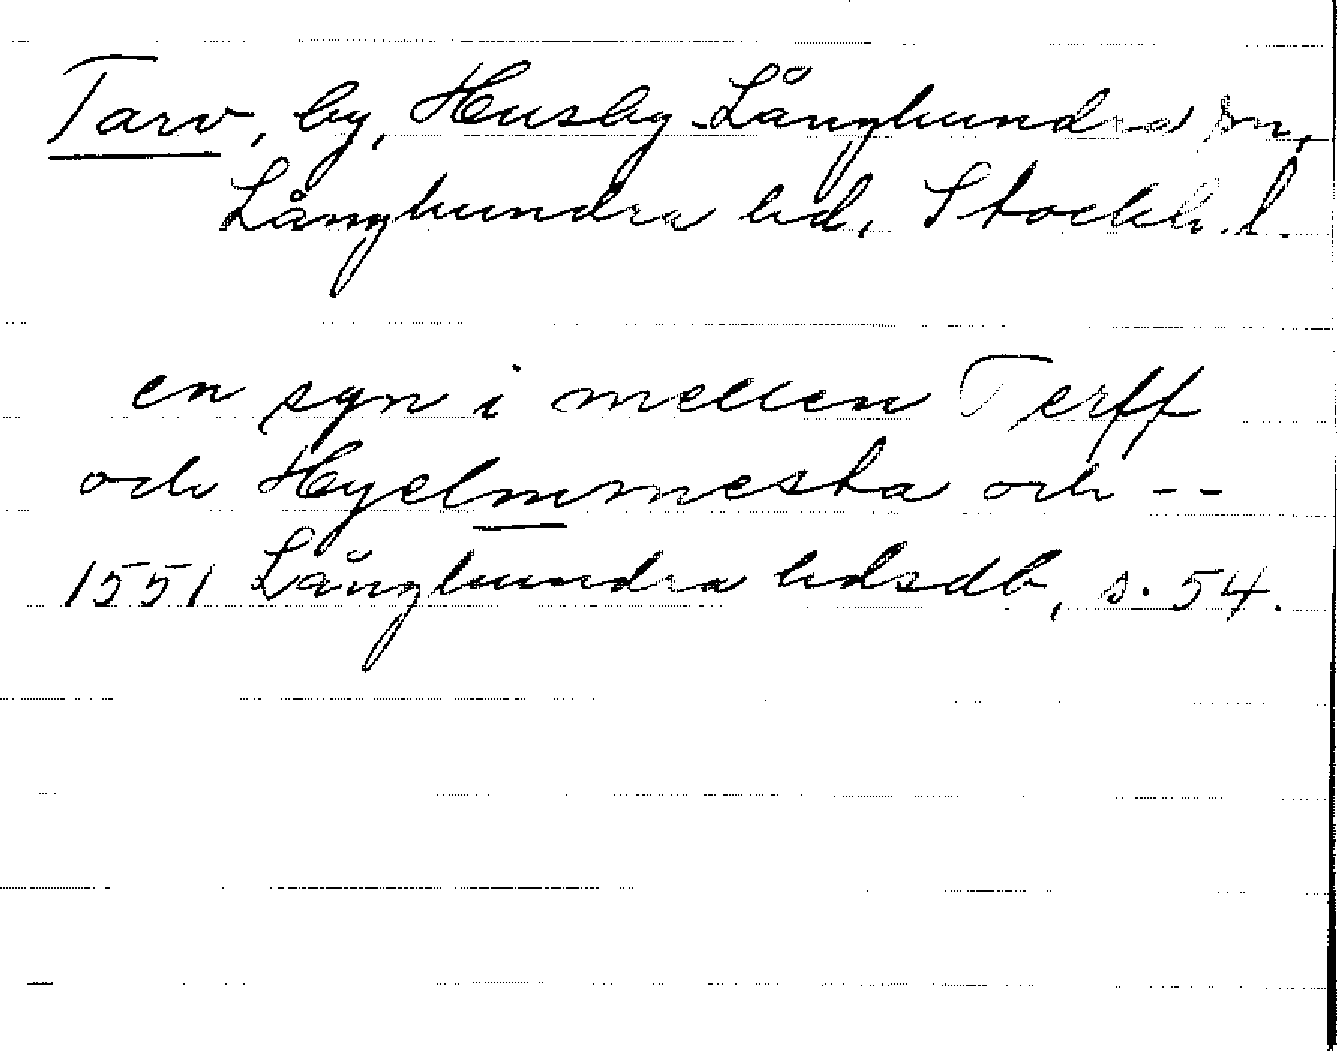 Tarv, by, Husby-Långhundra sn,
Långhundra hd, Stockh. l.
en syn i mellen Terff
och Hyelmmesta och --
1551 Långhundra hdsdb, s. 54.